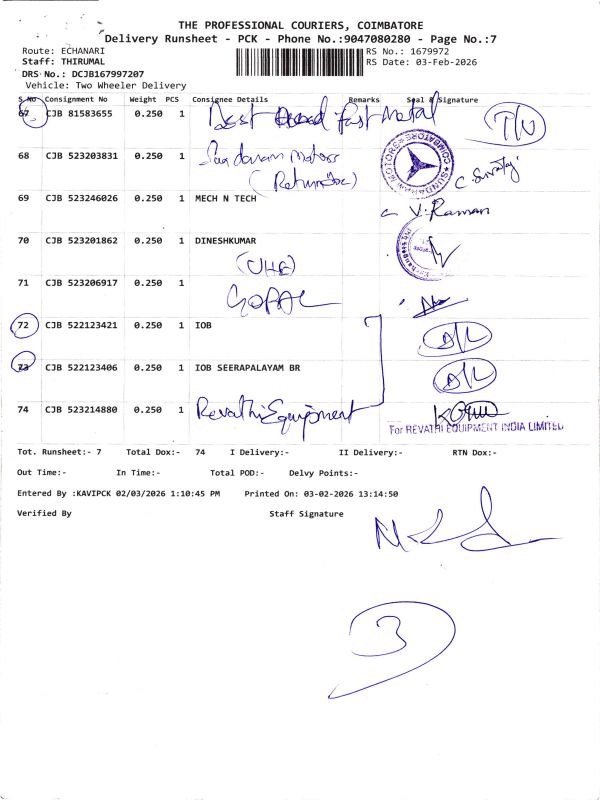 THE PROFESSIONAL COURIERS, COIMBATORE
Delivery Runsheet - PCK - Phone No.:9047080280 - Page No.:7
Route: ECHANARI
RS No.: 1679972
Staff: THIRUMAL
RS Date: 03-Feb-2026
DRS No.: DCJB167997207
Vehicle: Two Wheeler Delivery
S.No Consignment No Weight PCS Consignee Details Remarks Seal & Signature
67 CJB 81583655 0.250 1 fast metal
68 CJB 523203831 0.250 1 Sundaram Motors
(Return Doc)
SUNDARAM MOTORS COIMBATORE
69 CJB 523246026 0.250 1 MECH N TECH V. Raman
70 CJB 523201862 0.250 1 DINESHKUMAR
71 CJB 523206917 0.250 1 GOPAL
72 CJB 522123421 0.250 1 IOB D/L
73 CJB 522123406 0.250 1 IOB SEERAPALAYAM BR D/L
74 CJB 523214880 0.250 1 Revathi Equipment
For REVATHI EQUIPMENT INDIA LIMITED
Tot. Runsheet:- 7 Total Dox:- 74 I Delivery:- II Delivery:- RTN Dox:-
Out Time:- In Time:- Total POD:- Delvy Points:-
Entered By :KAVIPCK 02/03/2026 1:10:45 PM Printed On: 03-02-2026 13:14:50
Verified By Staff Signature
3